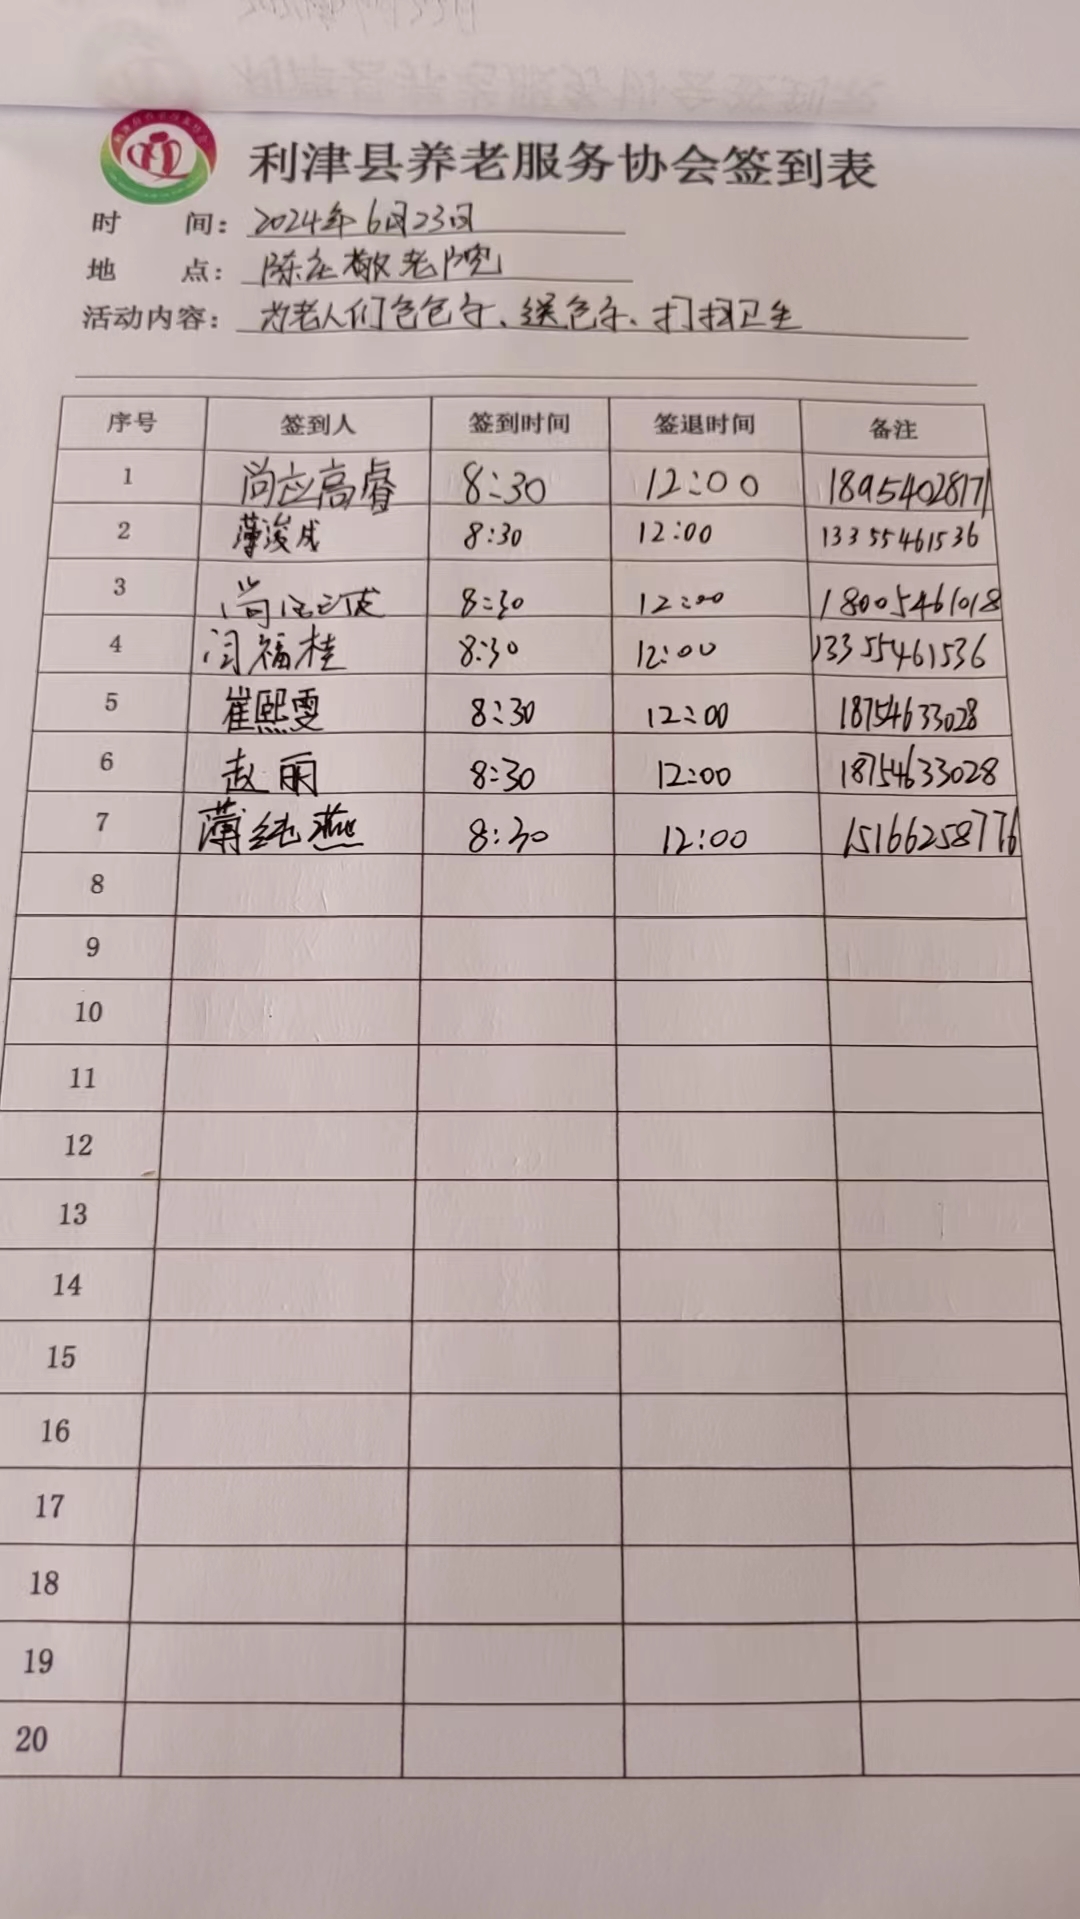 利津县养老服务协会签到表
时 间：2024年6月23日
地 点：陈庄敬老院
活动内容：为老人们包包子、送包子、打扫卫生
序号 签到人 签到时间 签退时间 备注
1 尚应高睿 8:30 12:00 18954028171
2 薄浚成 8:30 12:00 13355461536
3 尚 8:30 12:00 18005461018
4 闫福桂 8:30 12:00 13355461536
5 崔熙雯 8:30 12:00 18754633028
6 赵丽 8:30 12:00 18754633028
7 薄纯燕 8:30 12:00 15166258776
8
9
10
11
12
13
14
15
16
17
18
19
20